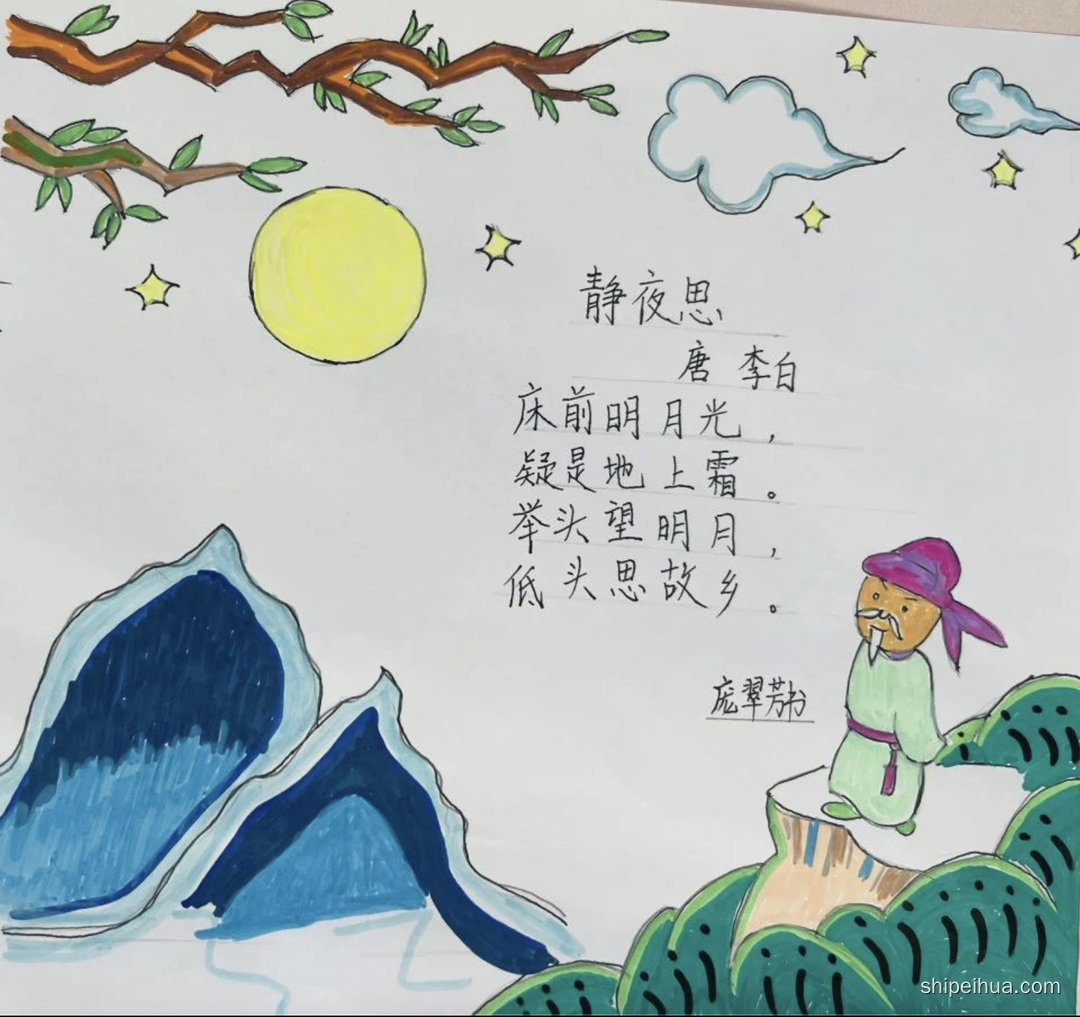 静夜思
唐 李白
床前明月光，
疑是地上霜。
举头望明月，
低头思故乡。
庞翠芳书
shipeihua.com